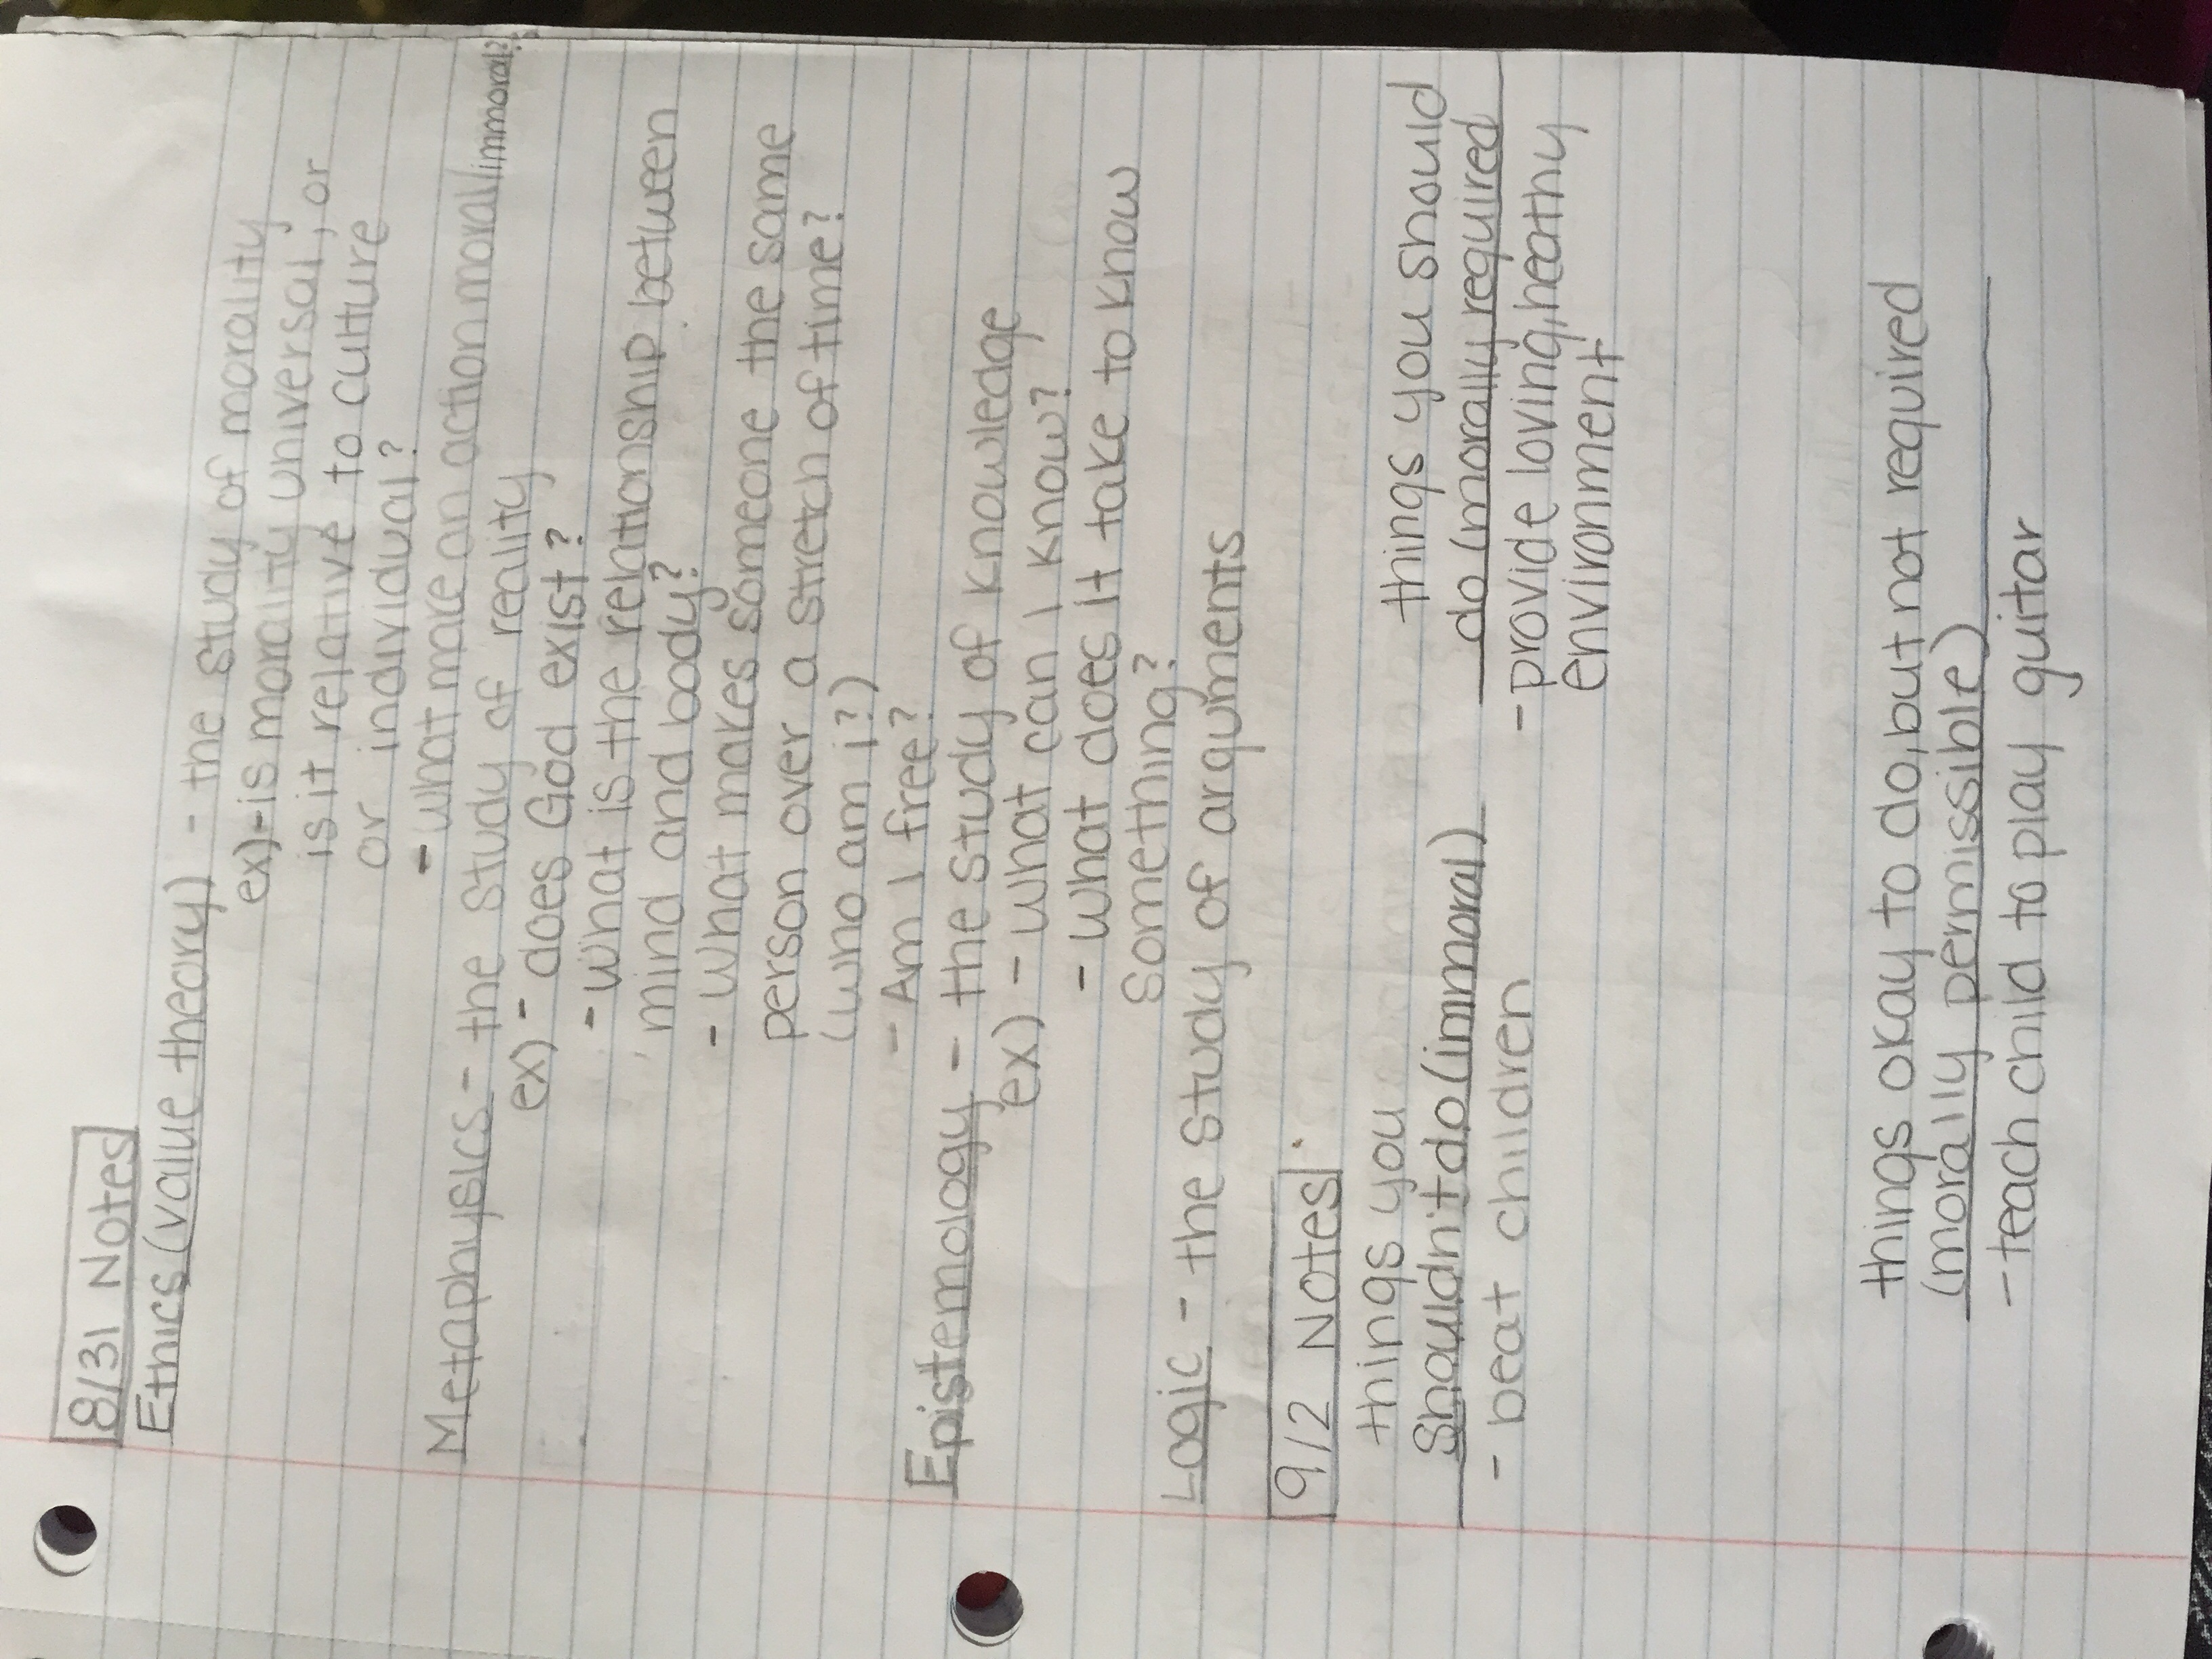 8/31 Notes
Ethics (value theory) - the study of morality
ex) - is morality universal, or
is it relative to culture
or individual?
- what make an action moral/immoral?
Metaphysics - the study of reality
ex) - does God exist?
- What is the relationship between
mind and body?
- What makes someone the same
person over a stretch of time?
(who am i?)
- Am I free?
Epistemology - the study of knowledge
ex) - what can I know?
- what does it take to know
something?
Logic - the study of arguments
9/2 Notes
things you
Shouldn't do (immoral)
- beat children
things you should
do (morally required
- provide loving, heathy
environment
things okay to do, but not required
(morally permissible)
- teach child to play guitar